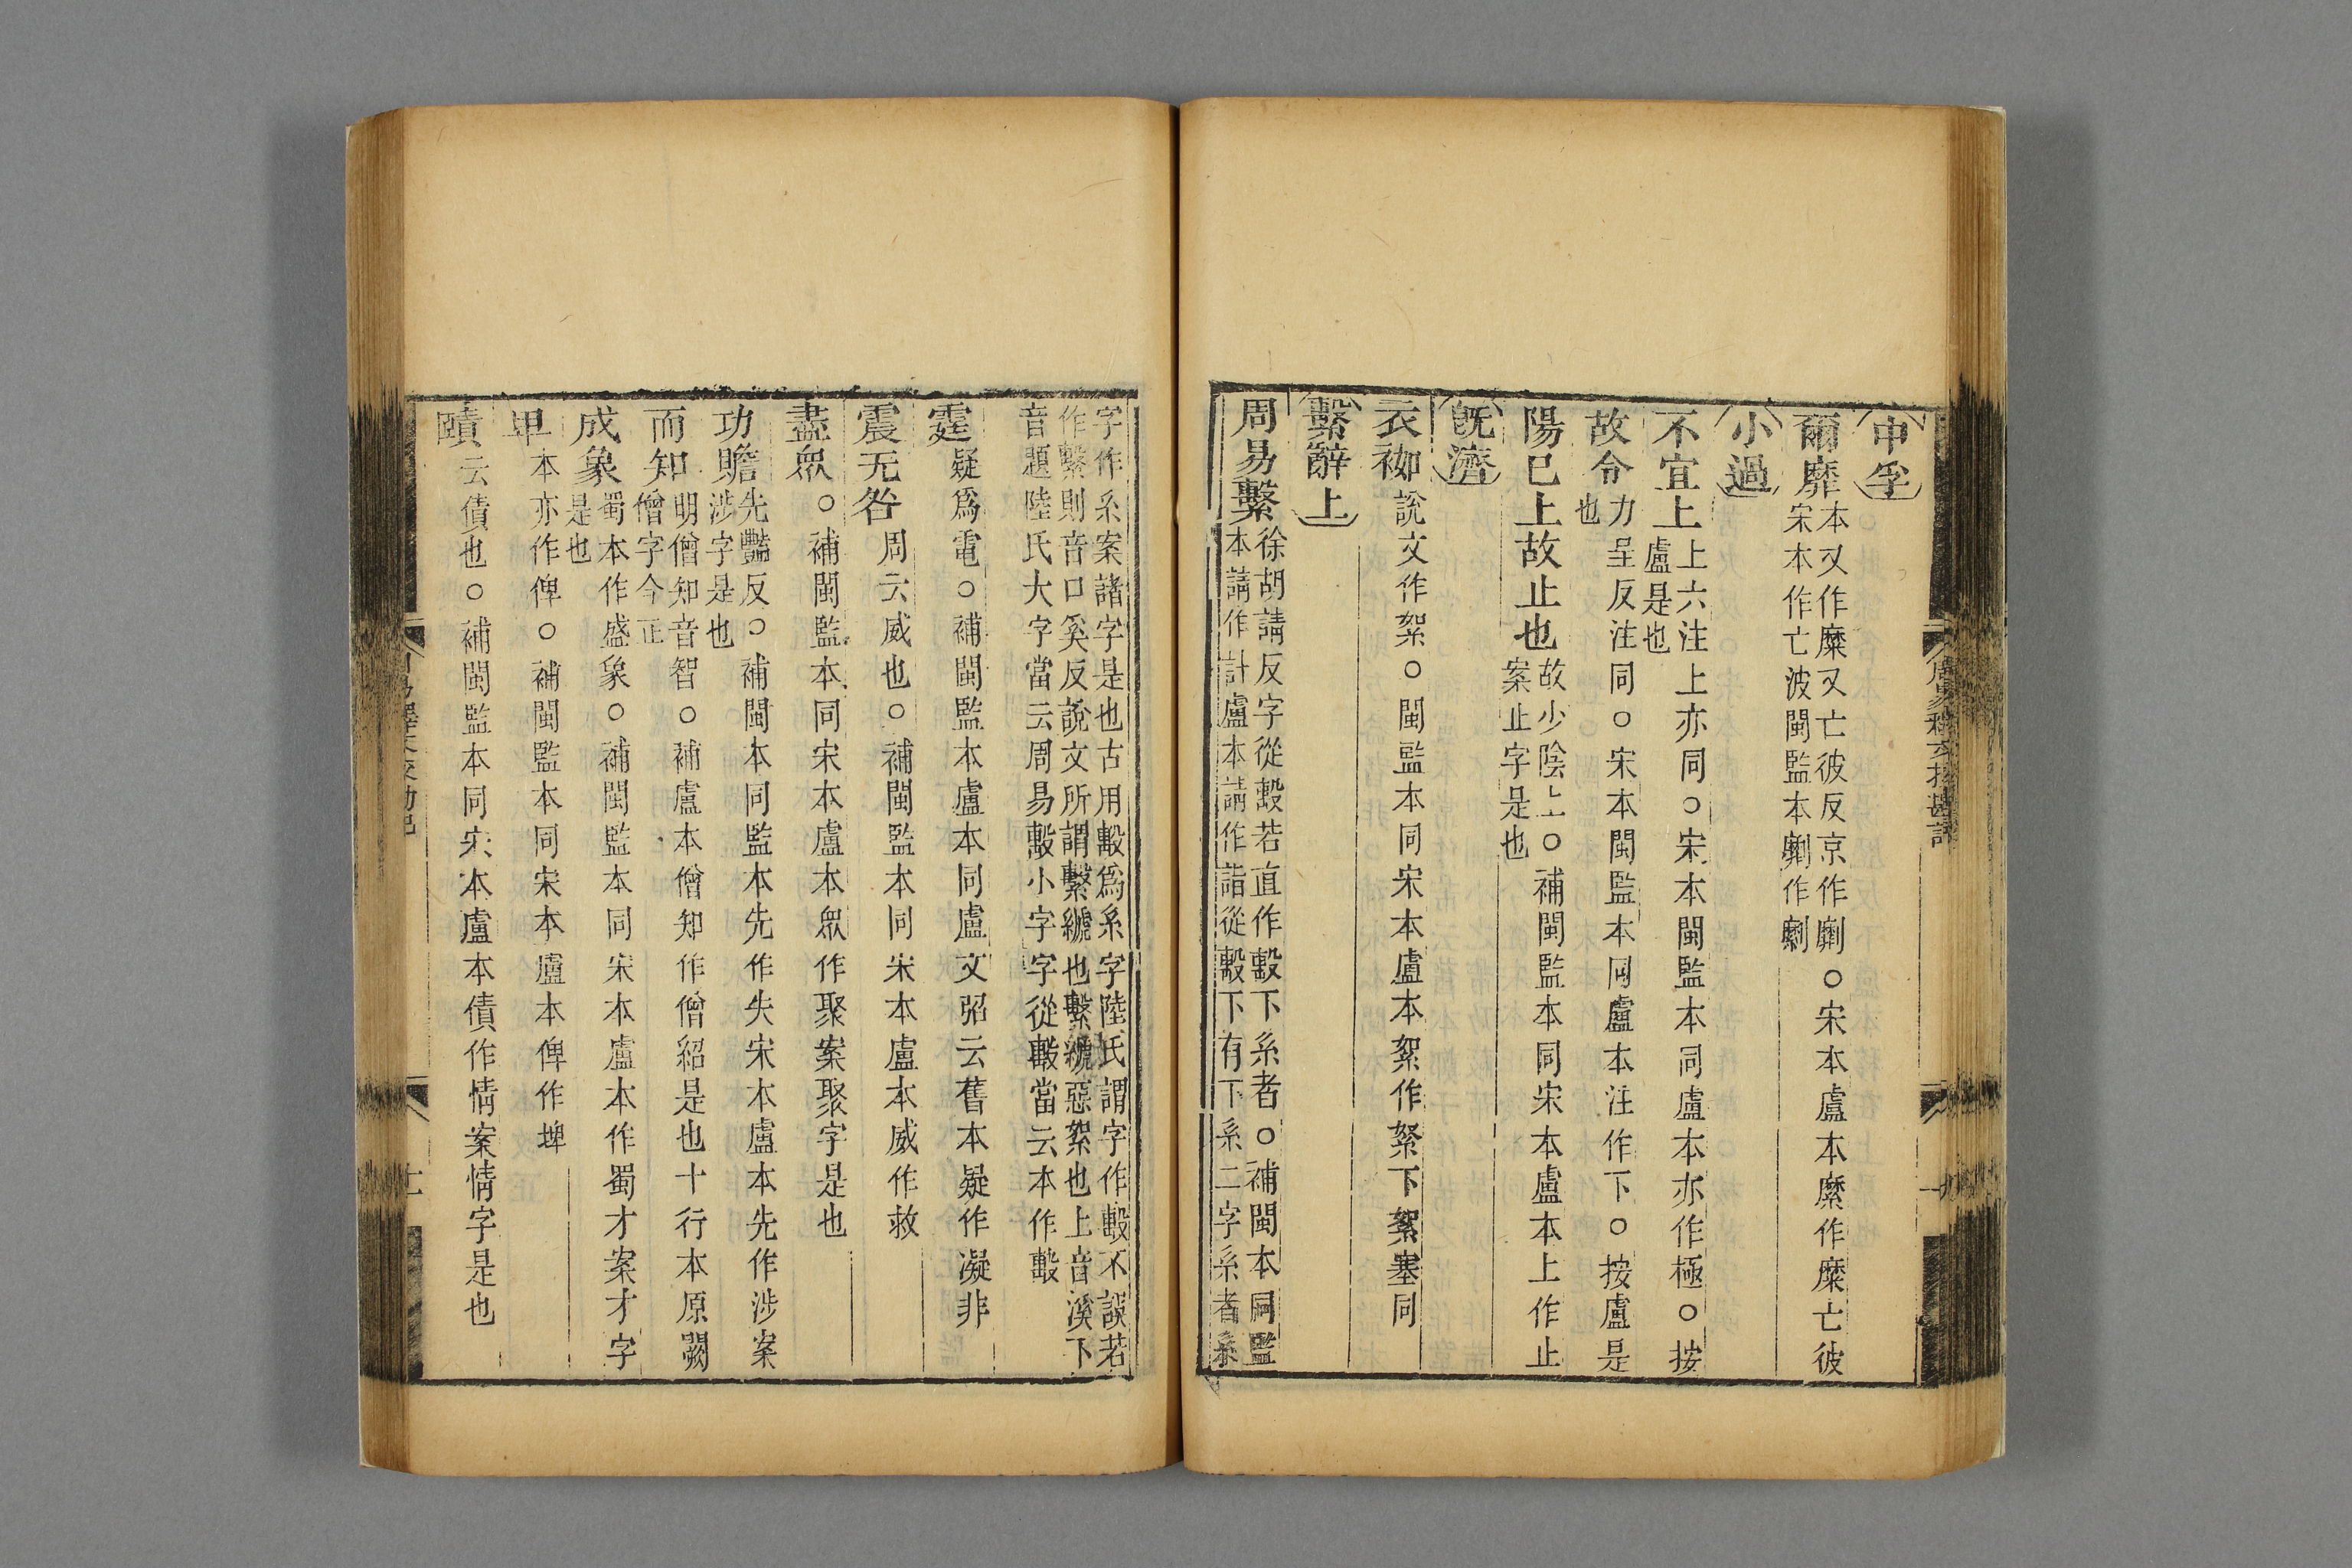 中孚
爾靡本又作糜又亡彼反京作劘○宋本盧本縻作糜亡彼
宋本作亡波閩監本劘作劘
小過
不宜上上六注上亦同○宋本閩監本同盧本亦作極○按
盧是也
故令力呈反注同○宋本閩監本同盧本注作下○按盧是
也
陽已上故止也故少陰上○補閩監本同宋本盧本上作止
案止字是也
既濟
衣袽說文作絮○閩監本同宋本盧本絮作絮下絮塞同
繫辭上
周易繫徐胡請反字從毄若直作毄下系者○補閩本同監
本請作計盧本請作詣從毄下有下系二字系者系
字作系案諸字是也古用毄爲系字陸氏謂字作毄不誤若
作繫則音口奚反說文所謂繫褫也繫褫惡絮也上音溪下
音題陸氏大字當云周易毄小字字從毄當云本作毄
霆疑爲電○補閩監本盧本同盧文弨云舊本疑作凝非
震无咎周云威也○補閩監本同宋本盧本威作救
盡眾○補閩監本同宋本盧本眾作聚案聚字是也
功贍先豔反○補閩本同監本先作失宋本盧本先作涉案
涉字是也
而知明僧知音智○補盧本僧知作僧紹是也十行本原闕
僧字今正
成象蜀本作盛象○補閩監本同宋本盧本作蜀才案才字
是也
卑本亦作俾○補閩監本同宋本盧本俾作埤
賾云債也○補閩監本同宋本盧本債作情案情字是也